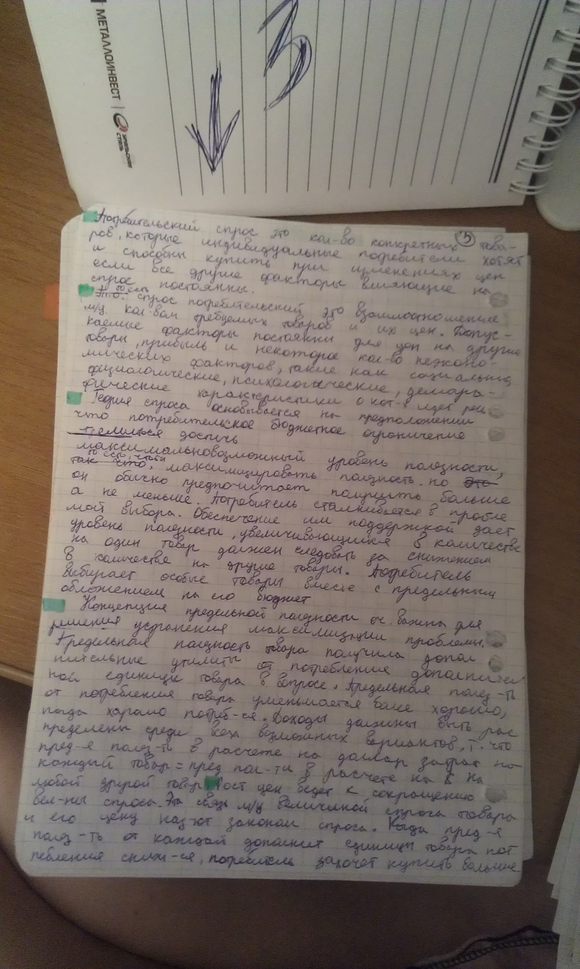 МЕТАЛЛОИНВЕСТ
УРАЛЬСКАЯ СТАЛЬ
3
5
Потребительский спрос это кол-во конкретных това-
ров, которые индивидуальные потребители хотят
и способны купить при изменениях цен
если все другие факторы влияющие на
спрос постоянны.
спрос потребительский это взаимоотношение
м/у кол-вом требуемых товаров и их цен. Допус-
каемые факторы постоянны для цен на другие
товары, прибыль и некоторое кол-во неэконо-
мических факторов, такие как социально
психологические, демогра-
фические характеристики о кот-х идет речь
Теория спроса основывается на предположении
что потребительское бюджетное ограничение
достичь
максимальновозможный уровень полезности,
так что, максимизировать полезность. по
он обычно предпочитает получить больше
а не меньше. Потребитель сталкивается в пробле
мой выбора. Обеспечение им поддержкой дает
уровень полезности, увеличивающийся в количестве
на один товар должен следовать за снижением
в количестве на другие товары. Потребитель
выбирает особые товары вместе с предельным
обложением на его бюджет
Концепция предельной полезности оч. важна для
решения устранения максимизации проблемы.
Предельная полезность товара получила допол
нительные утилиты от потребления дополнитель
ной единицы товара в вопросе. Предельная полез-ть
от потребления товара уменьшается более хорошо,
когда хорошо потреб-ся. Доходы должны быть рас
пределены среди всех возможных вариантов, т. что
пред-я полез-ть в расчете на доллар затрат на
каждый товар = пред пол-ти в расчете на $ на
любой другой товар. Рост цен ведет к сокращению
вел-ны спроса. Эта связь м/у величиной спроса товара
и его цену наз-ют законом спроса. Когда пред-я
полез-ть от каждой дополнит единицы товара пот
ребления сниж-ся, потребитель захочет купить больше